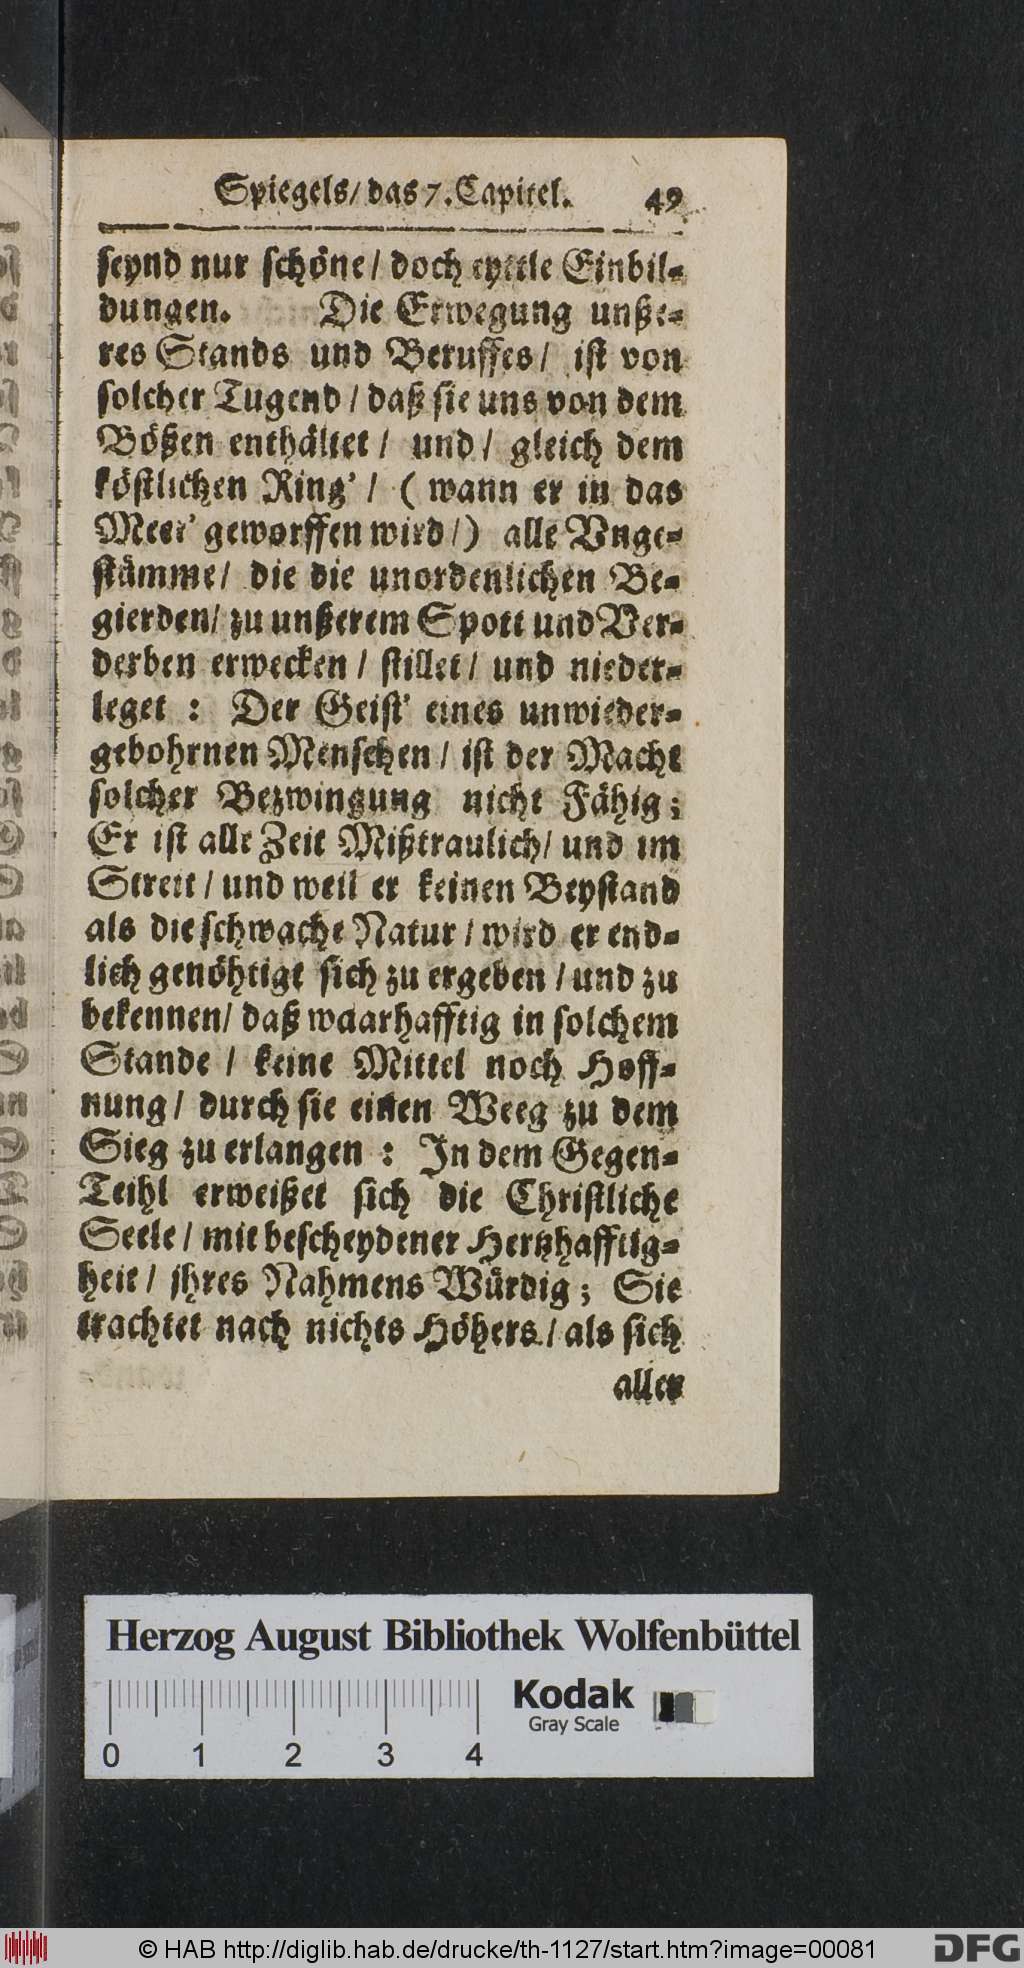 Spiegels/ das 7. Capitel. 49
seynd nur schöne / doch eyttle Einbil⸗
dungen. Die Erwegung unße⸗
res Stands und Beruffes / ist von
solcher Tugend / daß sie uns von dem
Bößen enthältet / und / gleich dem
köstlichen Ring’ / ( wann er in das
Meer’ geworffen wird /) alle Vnge⸗
stämme / die die unordenlichen Be⸗
gierden / zu unßerem Spott und Ver⸗
derben erwecken / stillet / und nieder⸗
leget : Der Geist’ eines unwieder⸗
gebohrnen Menschen / ist der Macht
solcher Bezwingung nicht Fähig ;
Er ist alle Zeit Mißtraulich / und im
Streit / und weil er keinen Beystand
als die schwache Natur / wird er end⸗
lich genöhtigt sich zu ergeben / und zu
bekennen / daß waarhafftig in solchem
Stande / keine Mittel noch Hoff⸗
nung / durch sie einen Weeg zu dem
Sieg zu erlangen : In dem Gegen⸗
Teihl erweißet sich die Christliche
Seele / mit bescheydener Hertzhafftig⸗
heit / ihres Nahmens Würdig ; Sie
trachtet nach nichts Höhers / als sich
aller
Herzog August Bibliothek Wolfenbüttel
Kodak
Gray Scale
0 1 2 3 4
© HAB http://diglib.hab.de/drucke/th-1127/start.htm?image=00081
DFG